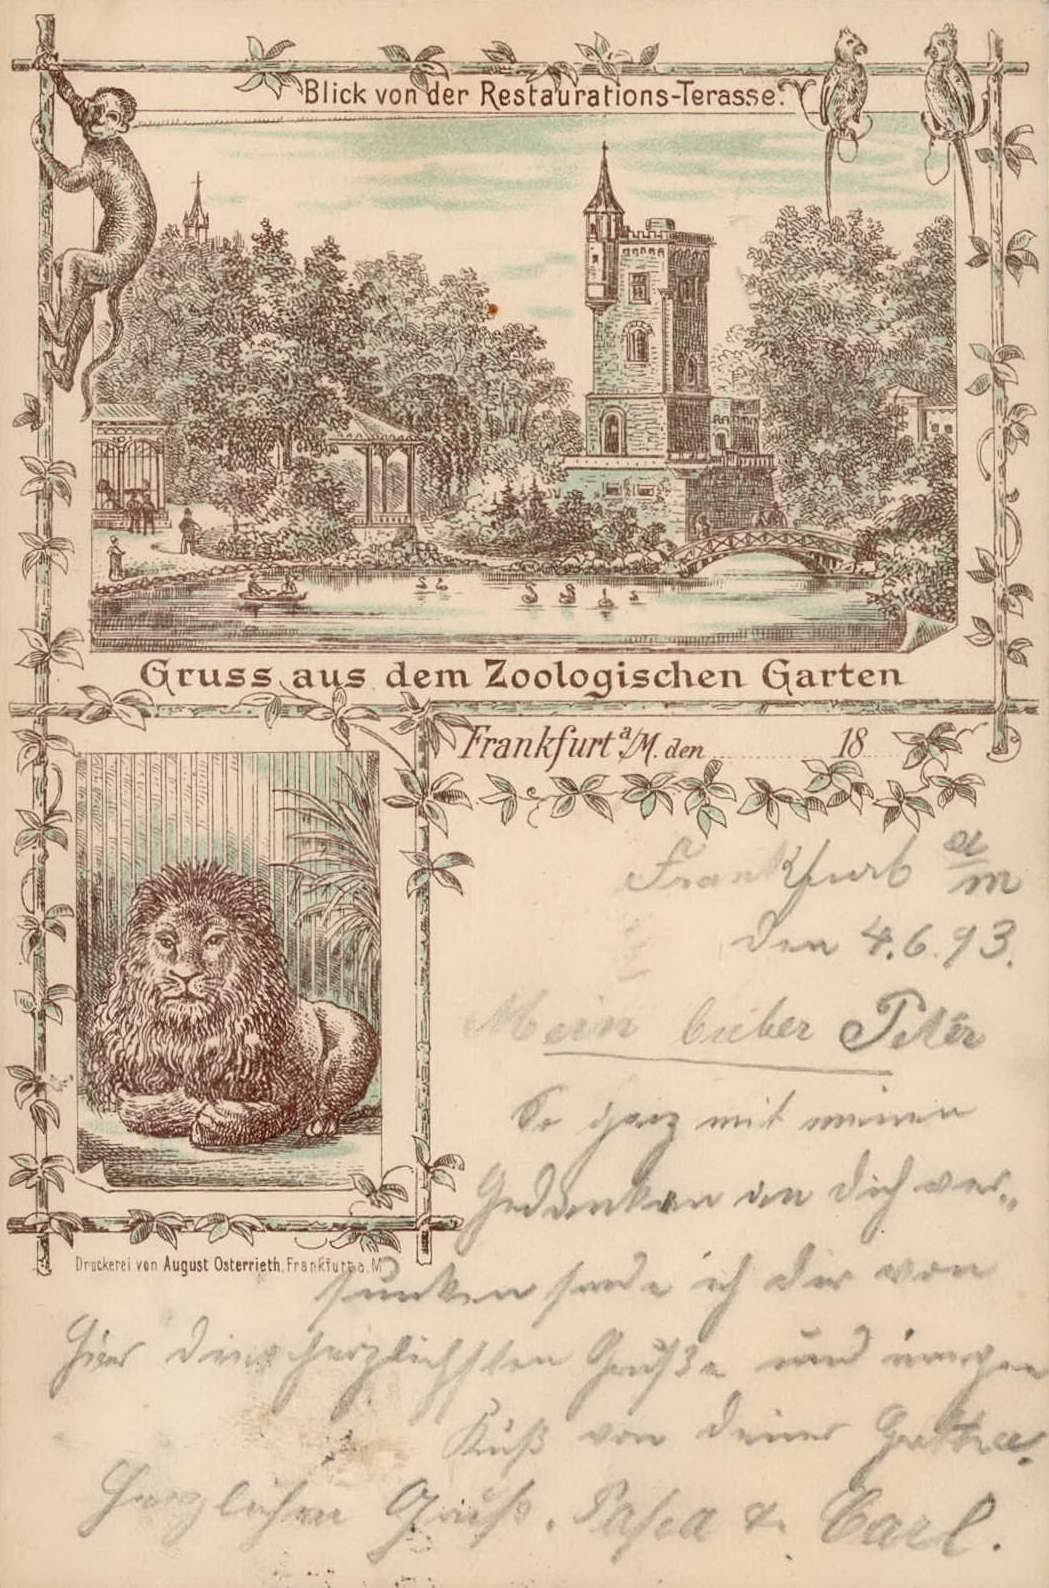 Blick von der Restaurations-Terasse.
Gruss aus dem Zoologischen Garten
Frankfurt a/M. den 18
Frankfurt a/M
den 4.6.93.
Mein lieber Peter
So ganz mit meinen
Gedanken an dich ver-
sunken sende ich dir von
hier die herzlichsten Grüße und innigen
Kuß von deiner
Herzlichen Gruß. Papa &. Carl.
Druckerei von August Osterrieth, Frankfurt a. M.